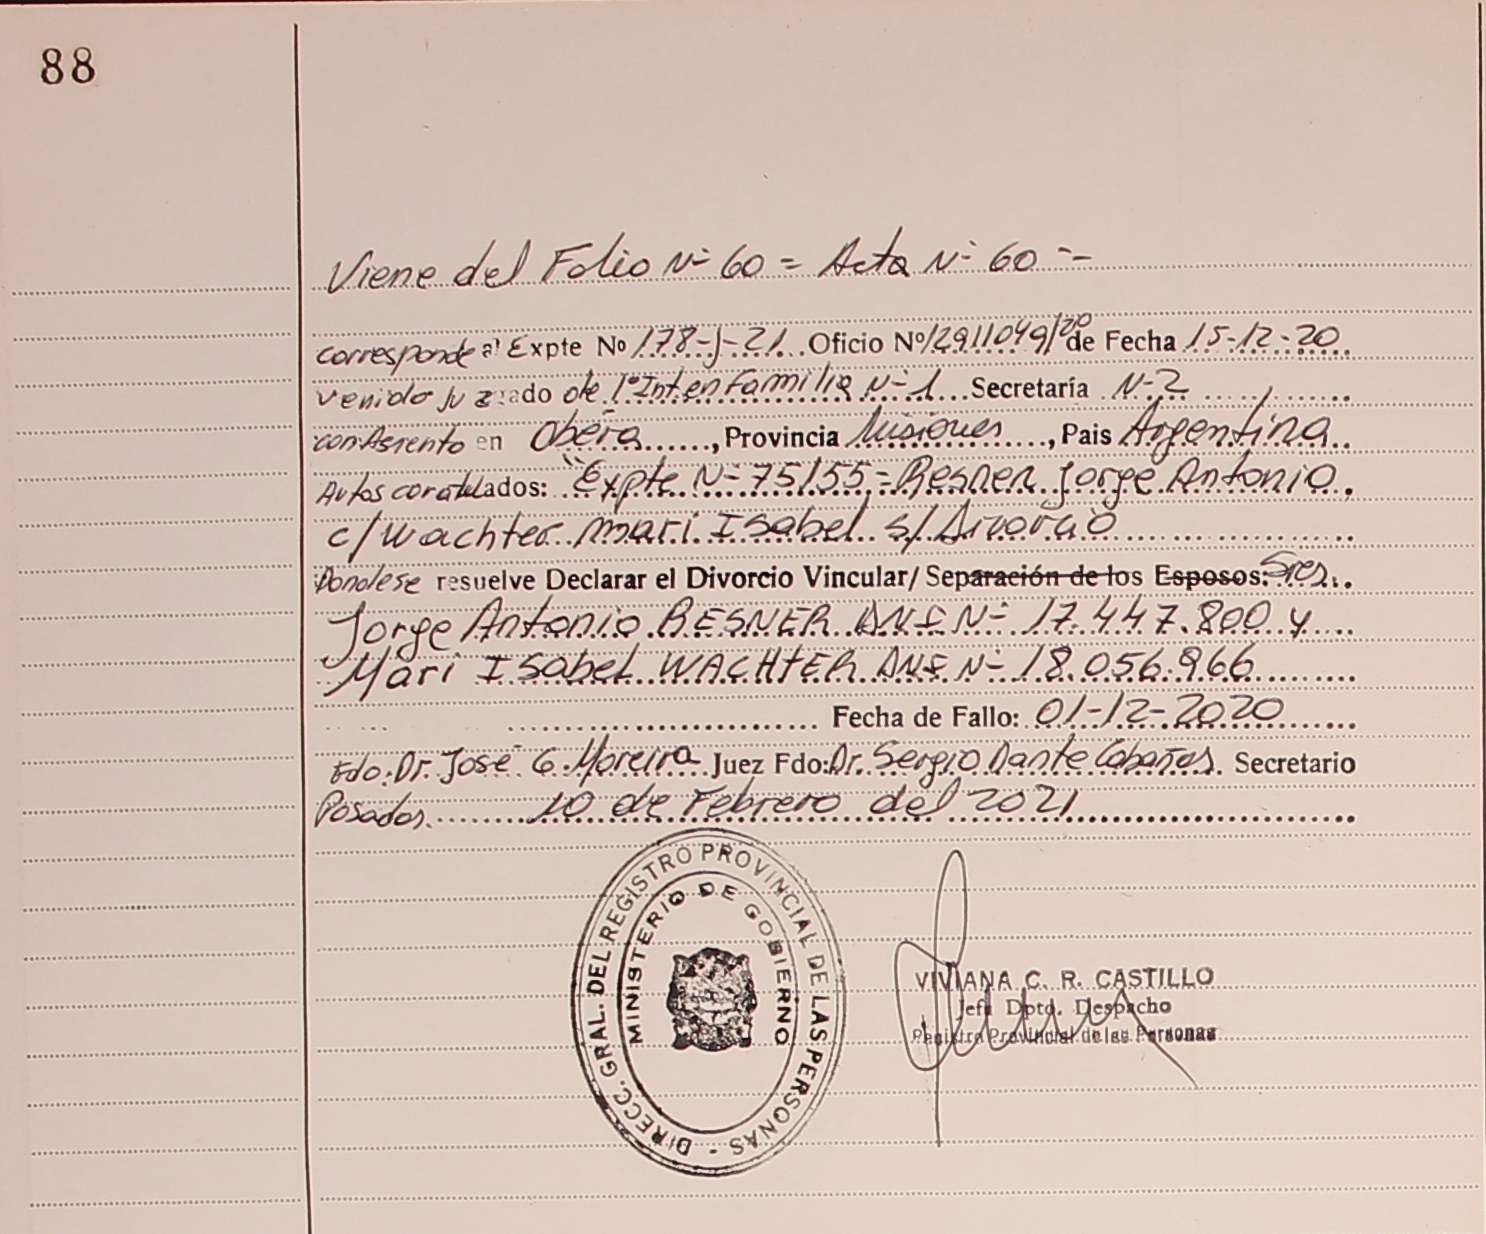 88
Viene del Folio Nº 60 = Acta Nº 60 =-
corresponde al Expte Nº 178-J-21 Oficio Nº 12911049/20 de Fecha 15-12-20
venido Juzgado de 1º Inten Familia Nº 1 Secretaría Nº 2
con Asiento en Oberá, Provincia Misiones, Pais Argentina
Autos caratulados: "Expte Nº 75155 = Resner Jorge Antonio
c/ Wachter Mari Isabel s/ Divorcio
Dondese resuelve Declarar el Divorcio Vincular/ Separación de los Esposos: Sres.
Jorge Antonio RESNER DNI Nº 17.447.800 y
Mari Isabel WACHTER DNI Nº 18.056.966
Fecha de Fallo: 01-12-2020
Fdo: Dr. José G. Moreira Juez Fdo: Dr. Sergio Dante Cabañas. Secretario
Posadas 10 de Febrero del 2021
DIRECC. GRAL. DEL REGISTRO PROVINCIAL DE LAS PERSONAS -
MINISTERIO DE GOBIERNO
VIVIANA C. R. CASTILLO
Jefa Dpto. Despacho
Registro Provincial de las Personas